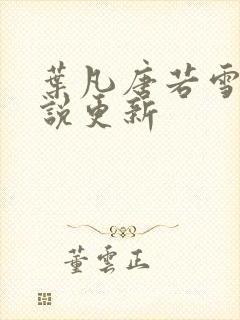 葉凡唐若雪
說更新
董雲正